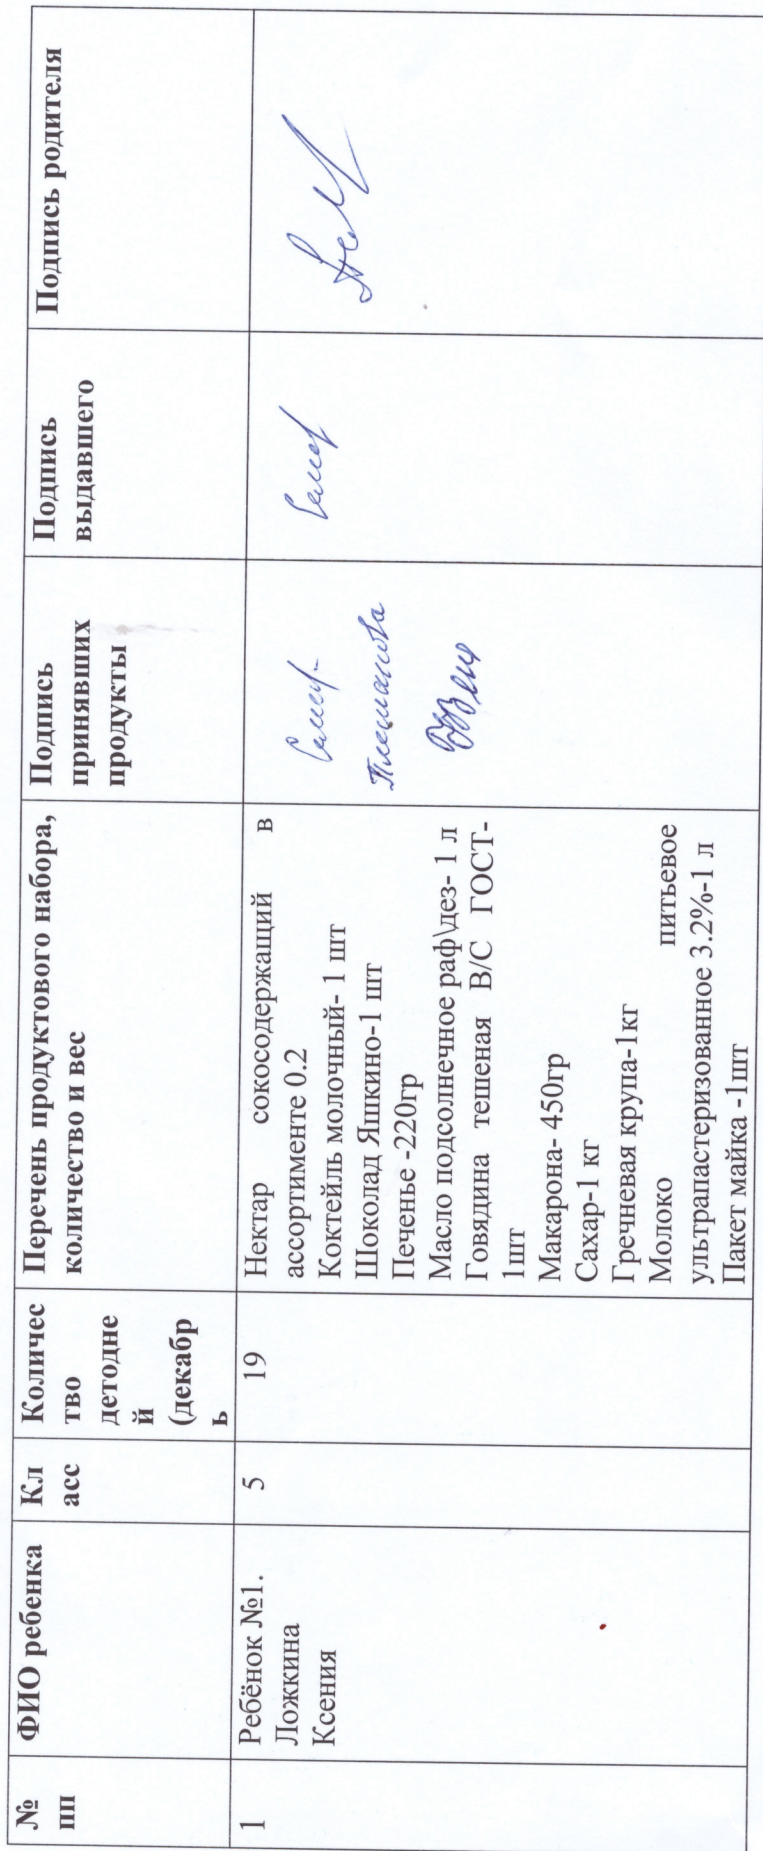 №
пп
ФИО ребенка
Кл
асс
Количес
тво
детодне
й
(декабр
ь
Перечень продуктового набора,
количество и вес
Подпись
принявших
продукты
Подпись
выдавшего
Подпись родителя
1
Ребёнок №1.
Ложкина
Ксения
5
19
Нектар сокосодержащий в
ассортименте 0.2
Коктейль молочный- 1 шт
Шоколад Яшкино-1 шт
Печенье -220гр
Масло подсолнечное раф\дез- 1 л
Говядина тешеная В/С ГОСТ-
1шт
Макарона- 450гр
Сахар-1 кг
Гречневая крупа-1кг
Молоко питьевое
ультрапастеризованное 3.2%-1 л
Пакет майка -1шт